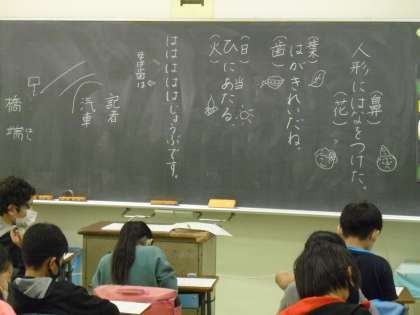 人形にはなをつけた。
(鼻)
(花)
はがきれいだね。
(葉)
(歯)
ひにあたる。
(日)
(火)
当
はははははじょうぶです。
母は歯は
記者
汽車
橋
端